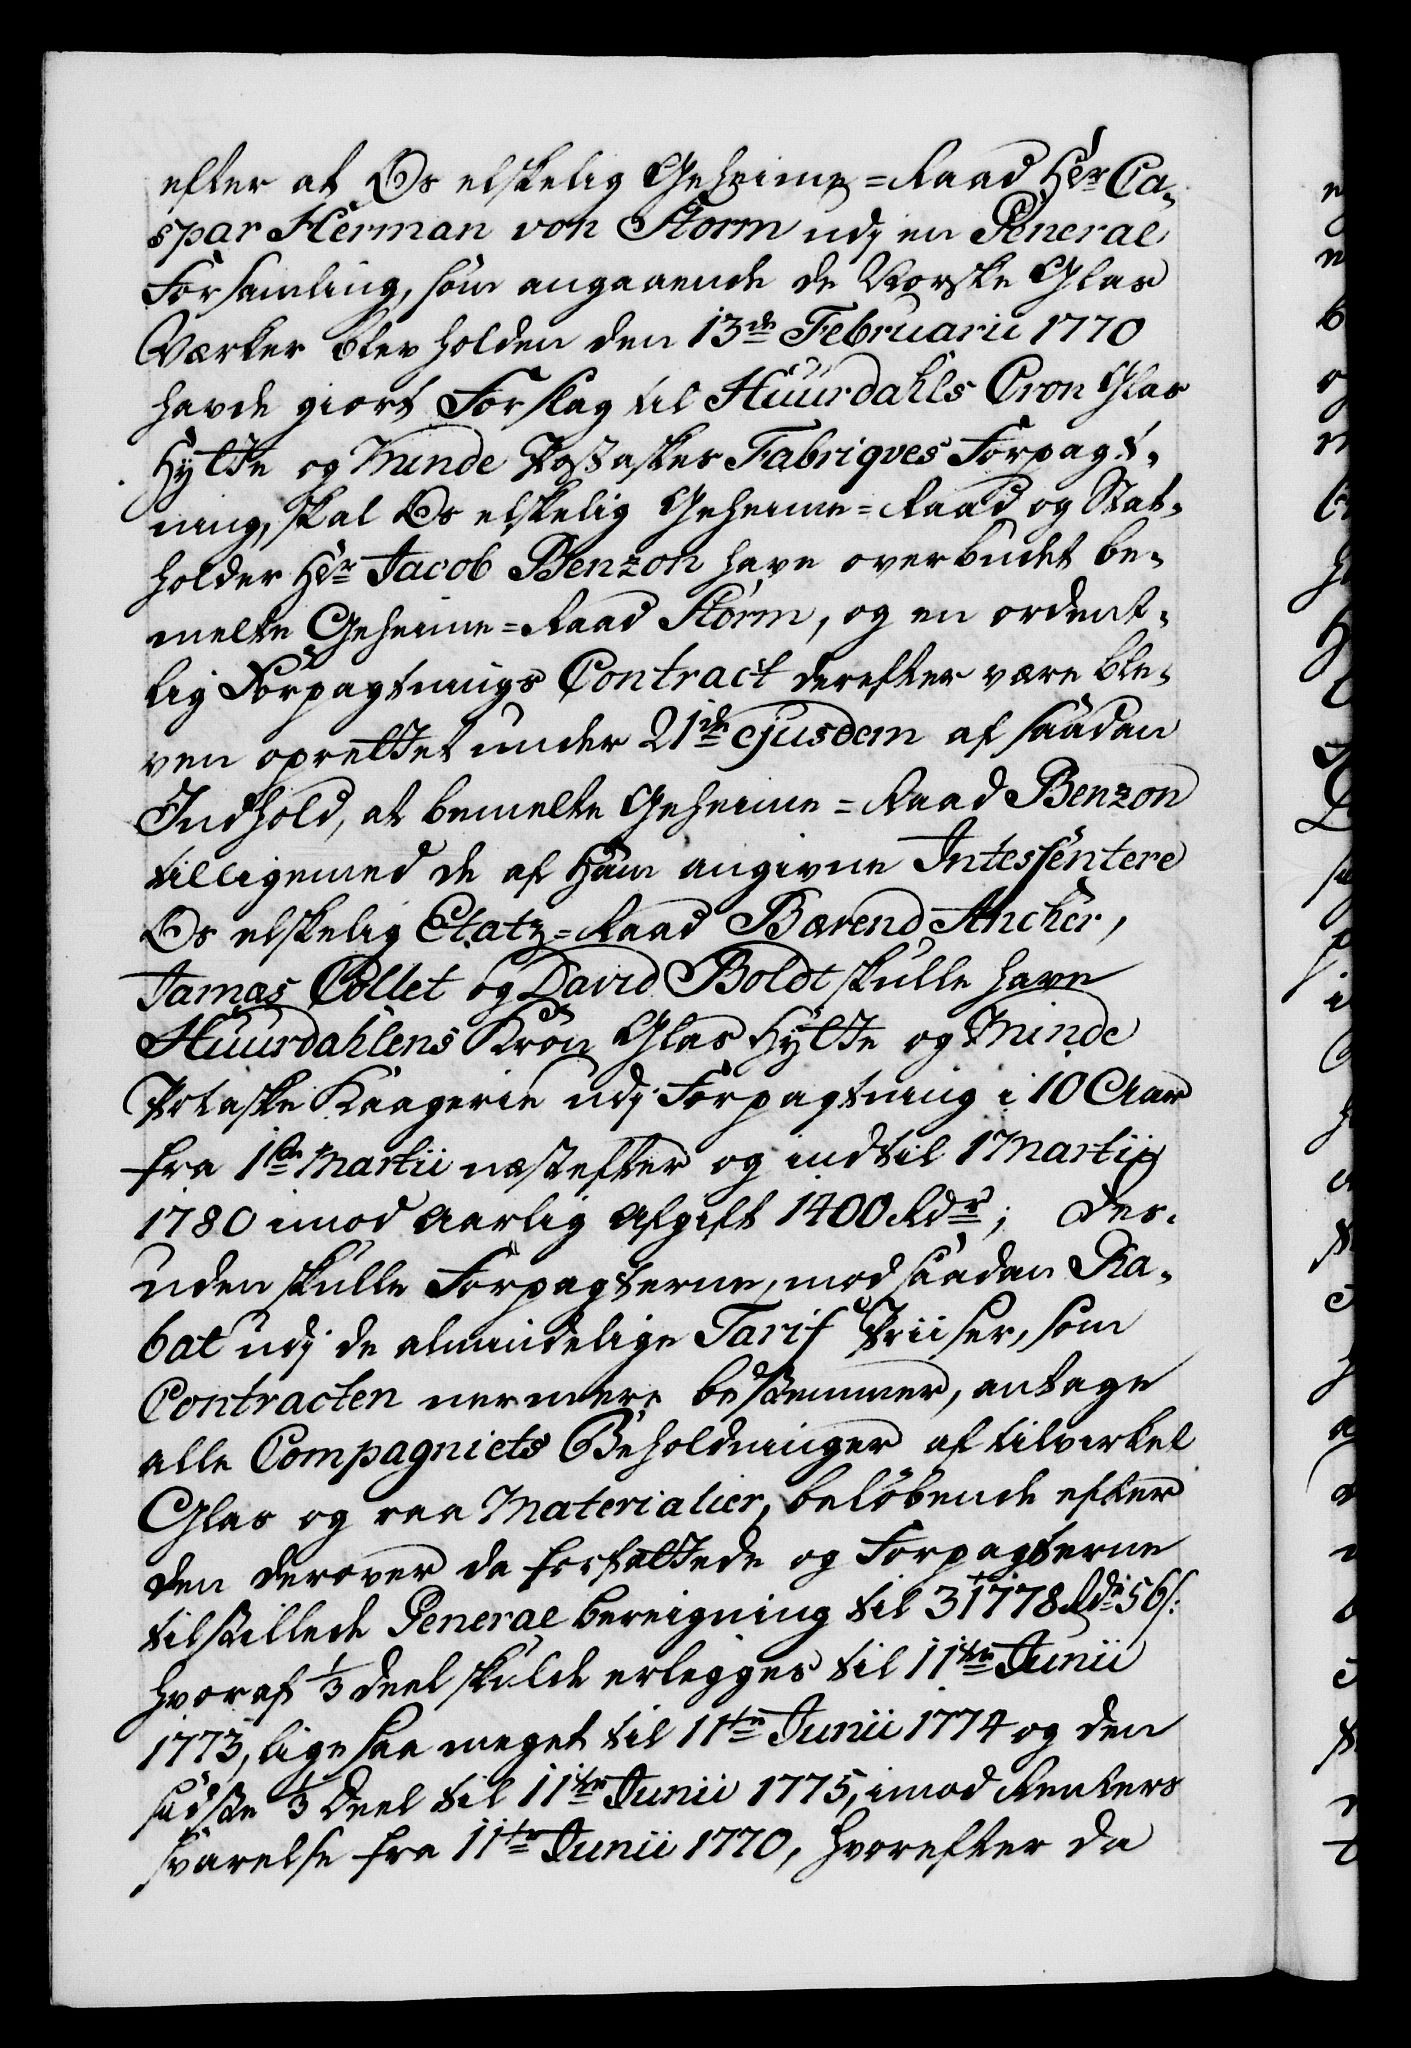 efter at Os elskelig Geheime=Raad Hr Ca-
spar Herman von Storm udj en General
Forsamling, som angaaende de Norske Glas
Værker blev holden den 13de Februarii 1770
havde giort Forslag til Huurdahls Cron Glas
Hytte og Minde Potaskes Fabriqves Forpagt-
ning, skal Os elskelig Geheime=Raad og Stat-
holder Hr Jacob Benzon have overbudet be-
melte Geheime=Raad Storm, og en ordent-
lig Forpagtnings Contract derefter være ble-
ven oprettet under 21de ejusdem af saadan
Indhold, at bemelte Geheime=Raad Benzon
tilligemed de af Ham angivne Intessentere
Os elskelig Etatz=Raad Bærend Ancher,
Jamas Collet og David Boldt skulle have
Huurdahlens Kron Glas Hytte og Minde
Potaske Kaagerie udj Forpagtning i 10 Aar
fra 1de Martii næstefter og indtil 1 Martii
1780 imod aarlig Afgift 1400 Rdr; Des-
uden skulle Forpagterne, mod saadan Ra-
bat udj de almindelige Tarif Priiser, som
Contracten nermere bestemmer, antage
alle Compagniets Beholdninger af tilvirket
Glas og raa Materialier, beløbende efter
den derover da forfattede og Forpagterne
tilstillede General bereigning til 31778 Rdr 56 s:
hvoraf 1/3 deel skulde erlegges til 11te Junii
1773, lige saa meget til 11te Junii 1774 og den
sidste 1/3 Deel til 11te Junii 1775, imod Renters
svarelse fra 11te Junii 1770, hvorefter da